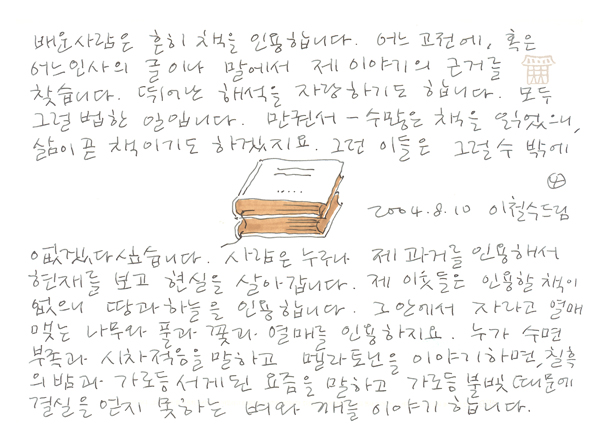 배운사람은 흔히 책을 인용합니다. 어느 고전에, 혹은
어느인사의 글이나 말에서 제 이야기의 근거를
찾습니다. 뛰어난 해석을 자랑하기도 합니다. 모두
그럴법한 일입니다. 만권서 - 수많은 책을 읽었으니,
삶이 곧 책이기도 하겠지요. 그런 이들은 그럴수 밖에
2004.8.10 이철수드림
없겠다 싶습니다. 사람은 누구나 제 과거를 인용해서
현재를 보고 현실을 살아갑니다. 제 이웃들은 인용할 책이
없으니 땅과 하늘을 인용합니다. 그 안에서 자라고 열매
맺는 나무와 풀과 꽃과 열매를 인용하지요. 누가 수면
부족과 시차적응을 말하고 멜라토닌을 이야기하면, 칠흑
의 밤과 가로등 서게된 요즘을 말하고 가로등 불빛 때문에
결실을 얻지 못하는 벼와 깨를 이야기 합니다.